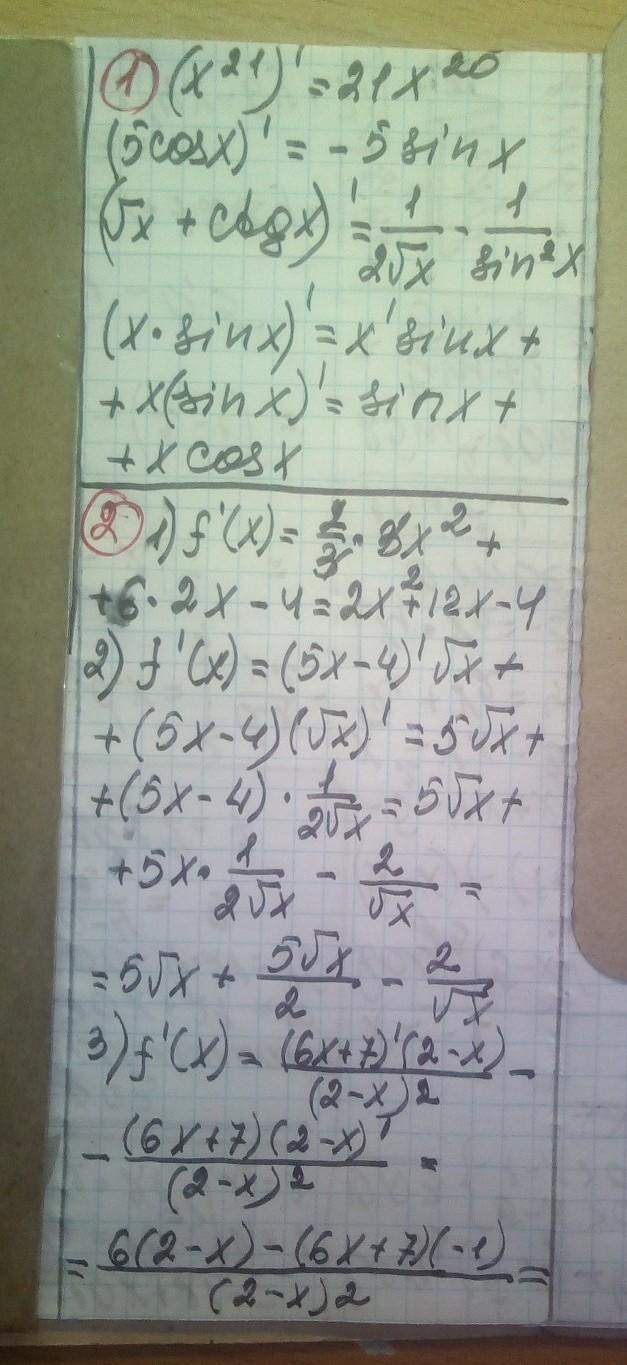 1 (x²¹)' = 21x²⁰
(5cosx)' = - 5 sin x
(√x + ctgx)' = 1/(2√x) - 1/(sin²x)
(x • sinx)' = x' sinx +
+ x(sin x)' = sin x +
+ x cosx
2 1) f'(x) = 2/3 • 3x² +
+ 6 • 2x - 4 = 2x² + 12x - 4
2) f'(x) = (5x - 4)' √x +
+ (5x - 4)(√x)' = 5√x +
+ (5x - 4) • 1/(2√x) = 5√x +
+ 5x • 1/(2√x) - 2/√x =
= 5√x + 5√x/2 - 2/√x
3) f'(x) = (6x+7)'(2-x)/(2-x)2 -
- (6x+7)(2-x)'/(2-x)2 =
= 6(2-x) - (6x+7)(-1)/(2-x)2 =